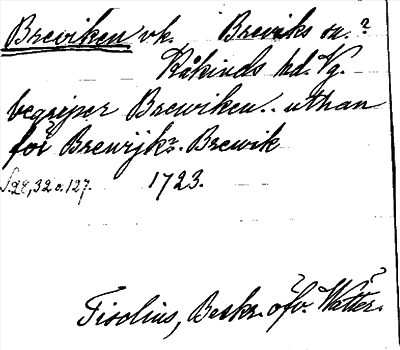 Breviken vk. Breviks sn.?
Kåkinds hd. Vg.
begriper Brewiken.. uthan
för Brewijk?. Brewik
S. 28, 32 o. 127. 1723.
Tiselius, Beskr. öfv. Wetter.